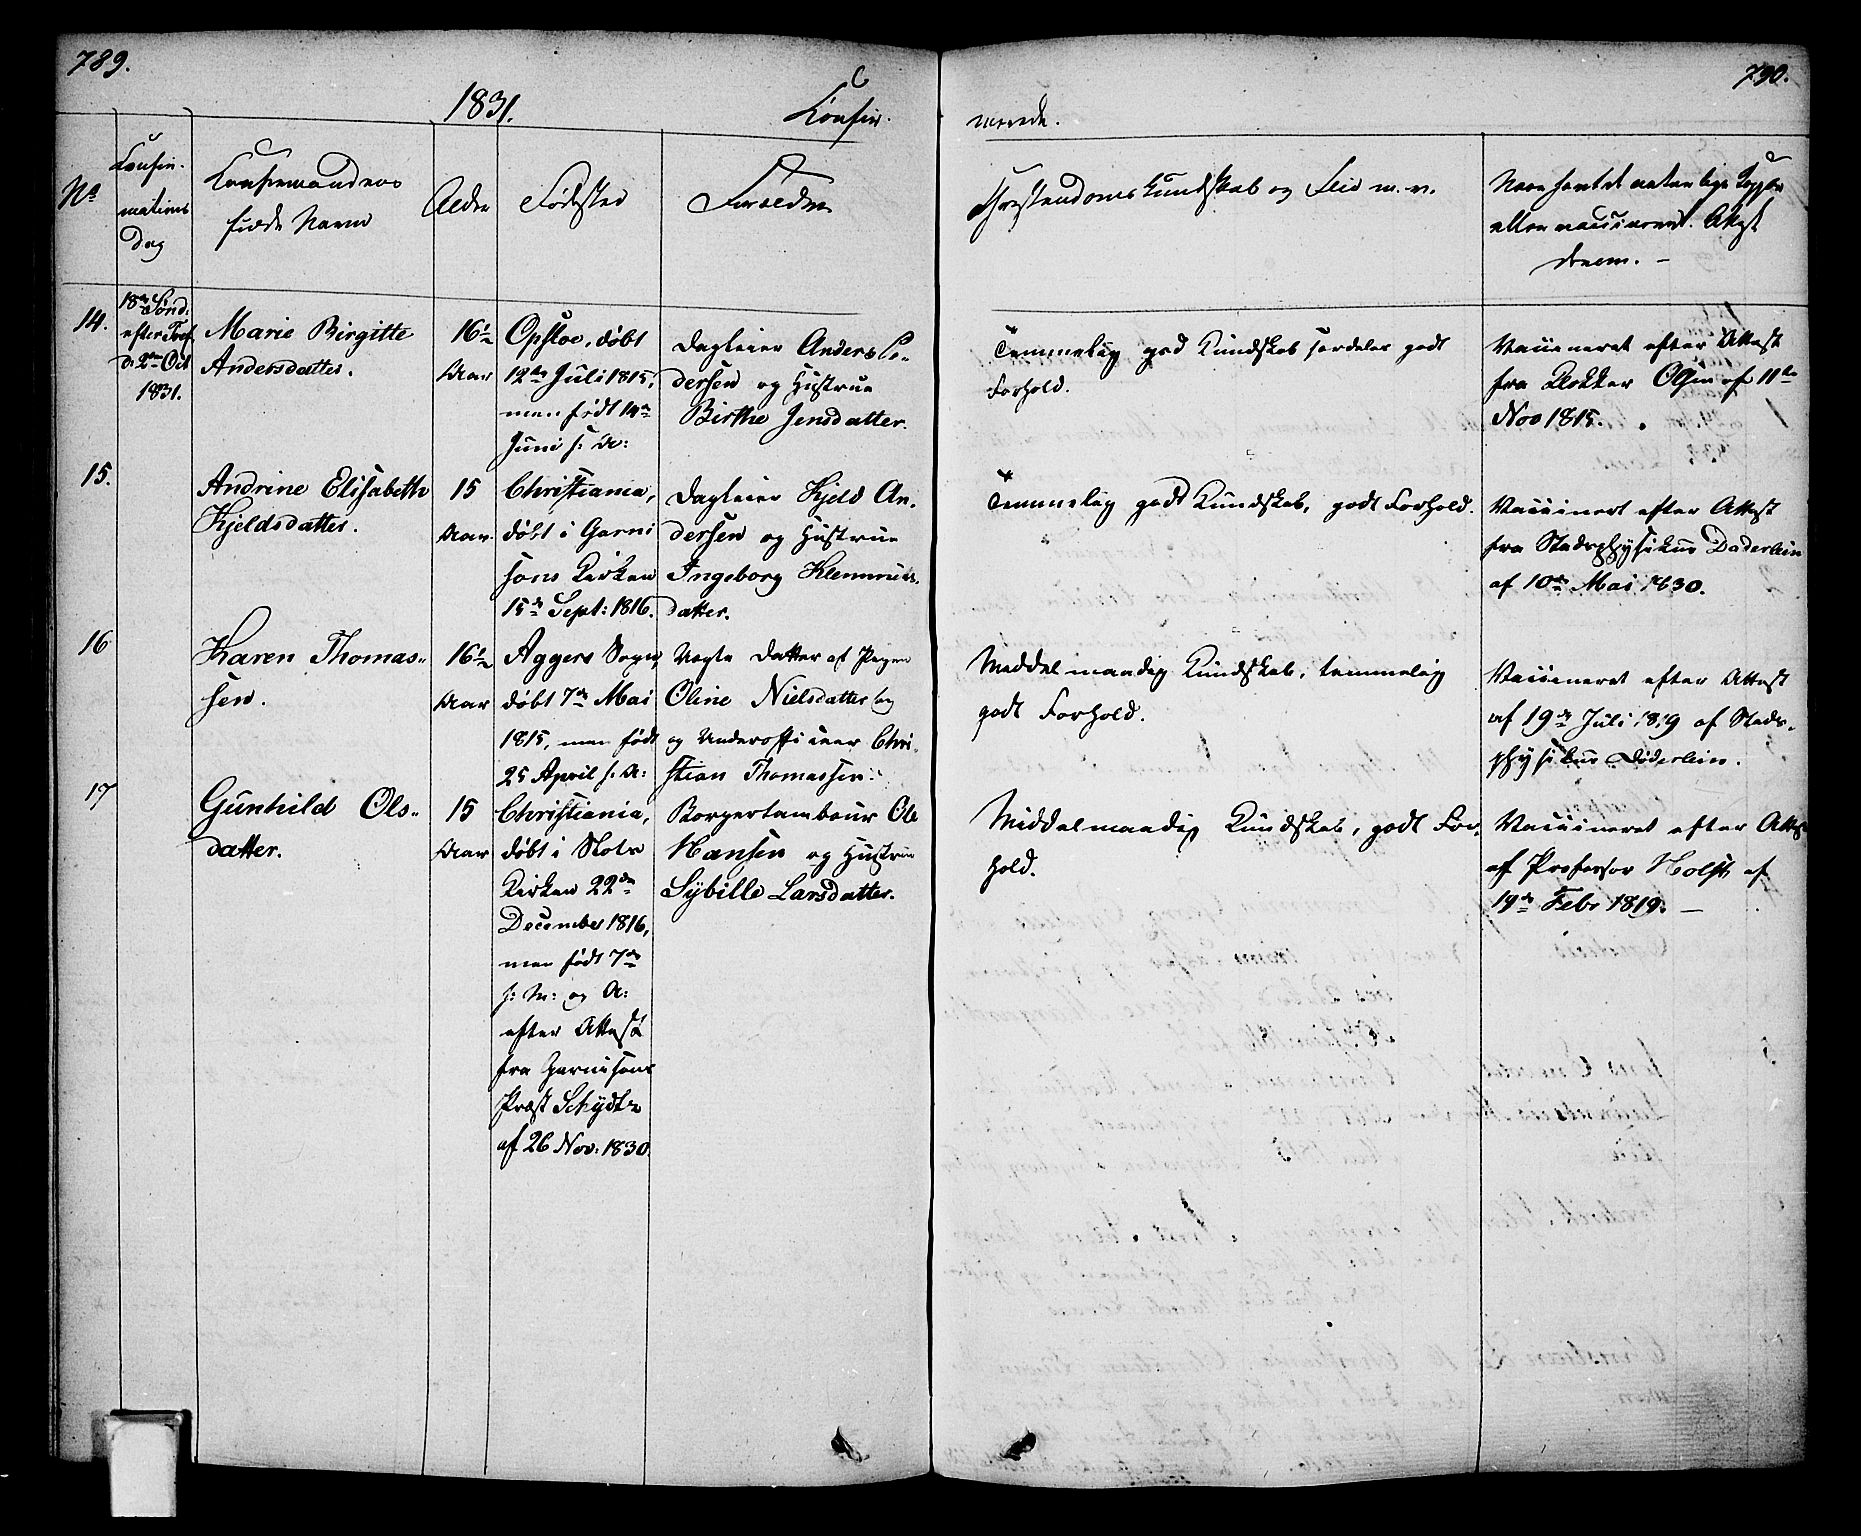 789.
1831.
Confir-
No
Confir-
mations
Dag
Confirmandens
fulde Navn
Alder
Fødested
Forældre
14.
18de Sønd:
efter Tref.
d. 2den Oct
1831.
Marie Birgitte
Andersdatter.
16½
Aar
Opsloe, døbt
12te Juli 1815,
men født 14de
Juni s: A:
Dagleier Anders Pe-
dersen og Hustrue
Birthe Jensdatter.
15.
Andrine Elisabeth
Kjeldsdatter.
15
Aar
Christiania,
døbt i Garni
sons Kirken
15de Sept: 1816.
Dagleier Kjeld An-
dersen og Hustrue
Ingeborg
datter.
16
Karen Thomas-
sen.
16½
Aar
Aggers Sogn,
døbt 7de Mai
1815, men født
25 April s: A:
Uægte Datter af Pigen
Oline Nielsdatter
og Underofficeer Chri-
stian Thomassen.
17
Gunhild Ols-
datter.
15
Aar
Christiania,
døbt i Slots
Kirken 22de
December 1816,
men født 7de
s: M: og A:
efter Attest
fra Garnisons
Præst Schydtz
af 26 Nov: 1830.
Borgertambour Ole
Hansen og Hustrue
Sybille Larsdatter.
790.
merede.
Christendomskundskab og Flid m. v.
Naar havt de naturlige Kopper
eller vaccineret. Attest
derom. –
Temmelig god Kundskab særdeles godt
Forhold.
Vaccineret efter Attest
fra Klokker af 11te
Nov 1815.
Temmelig godt Kundskab, godt Forhold.
Vaccinert efter Attest
fra Stadsphysikus Døderlein
af 10de Mai 1830.
Middelmaadig Kundskab, temmelig
godt Forhold.
Vaccineret efter Attest
af 19de Juli 1819 af Stads-
physikus Døderlein.
Middelmaadig Kundskab, godt For-
hold.
Vaccineret efter Attest
af Professor Holst af
19de Febr 1819. –